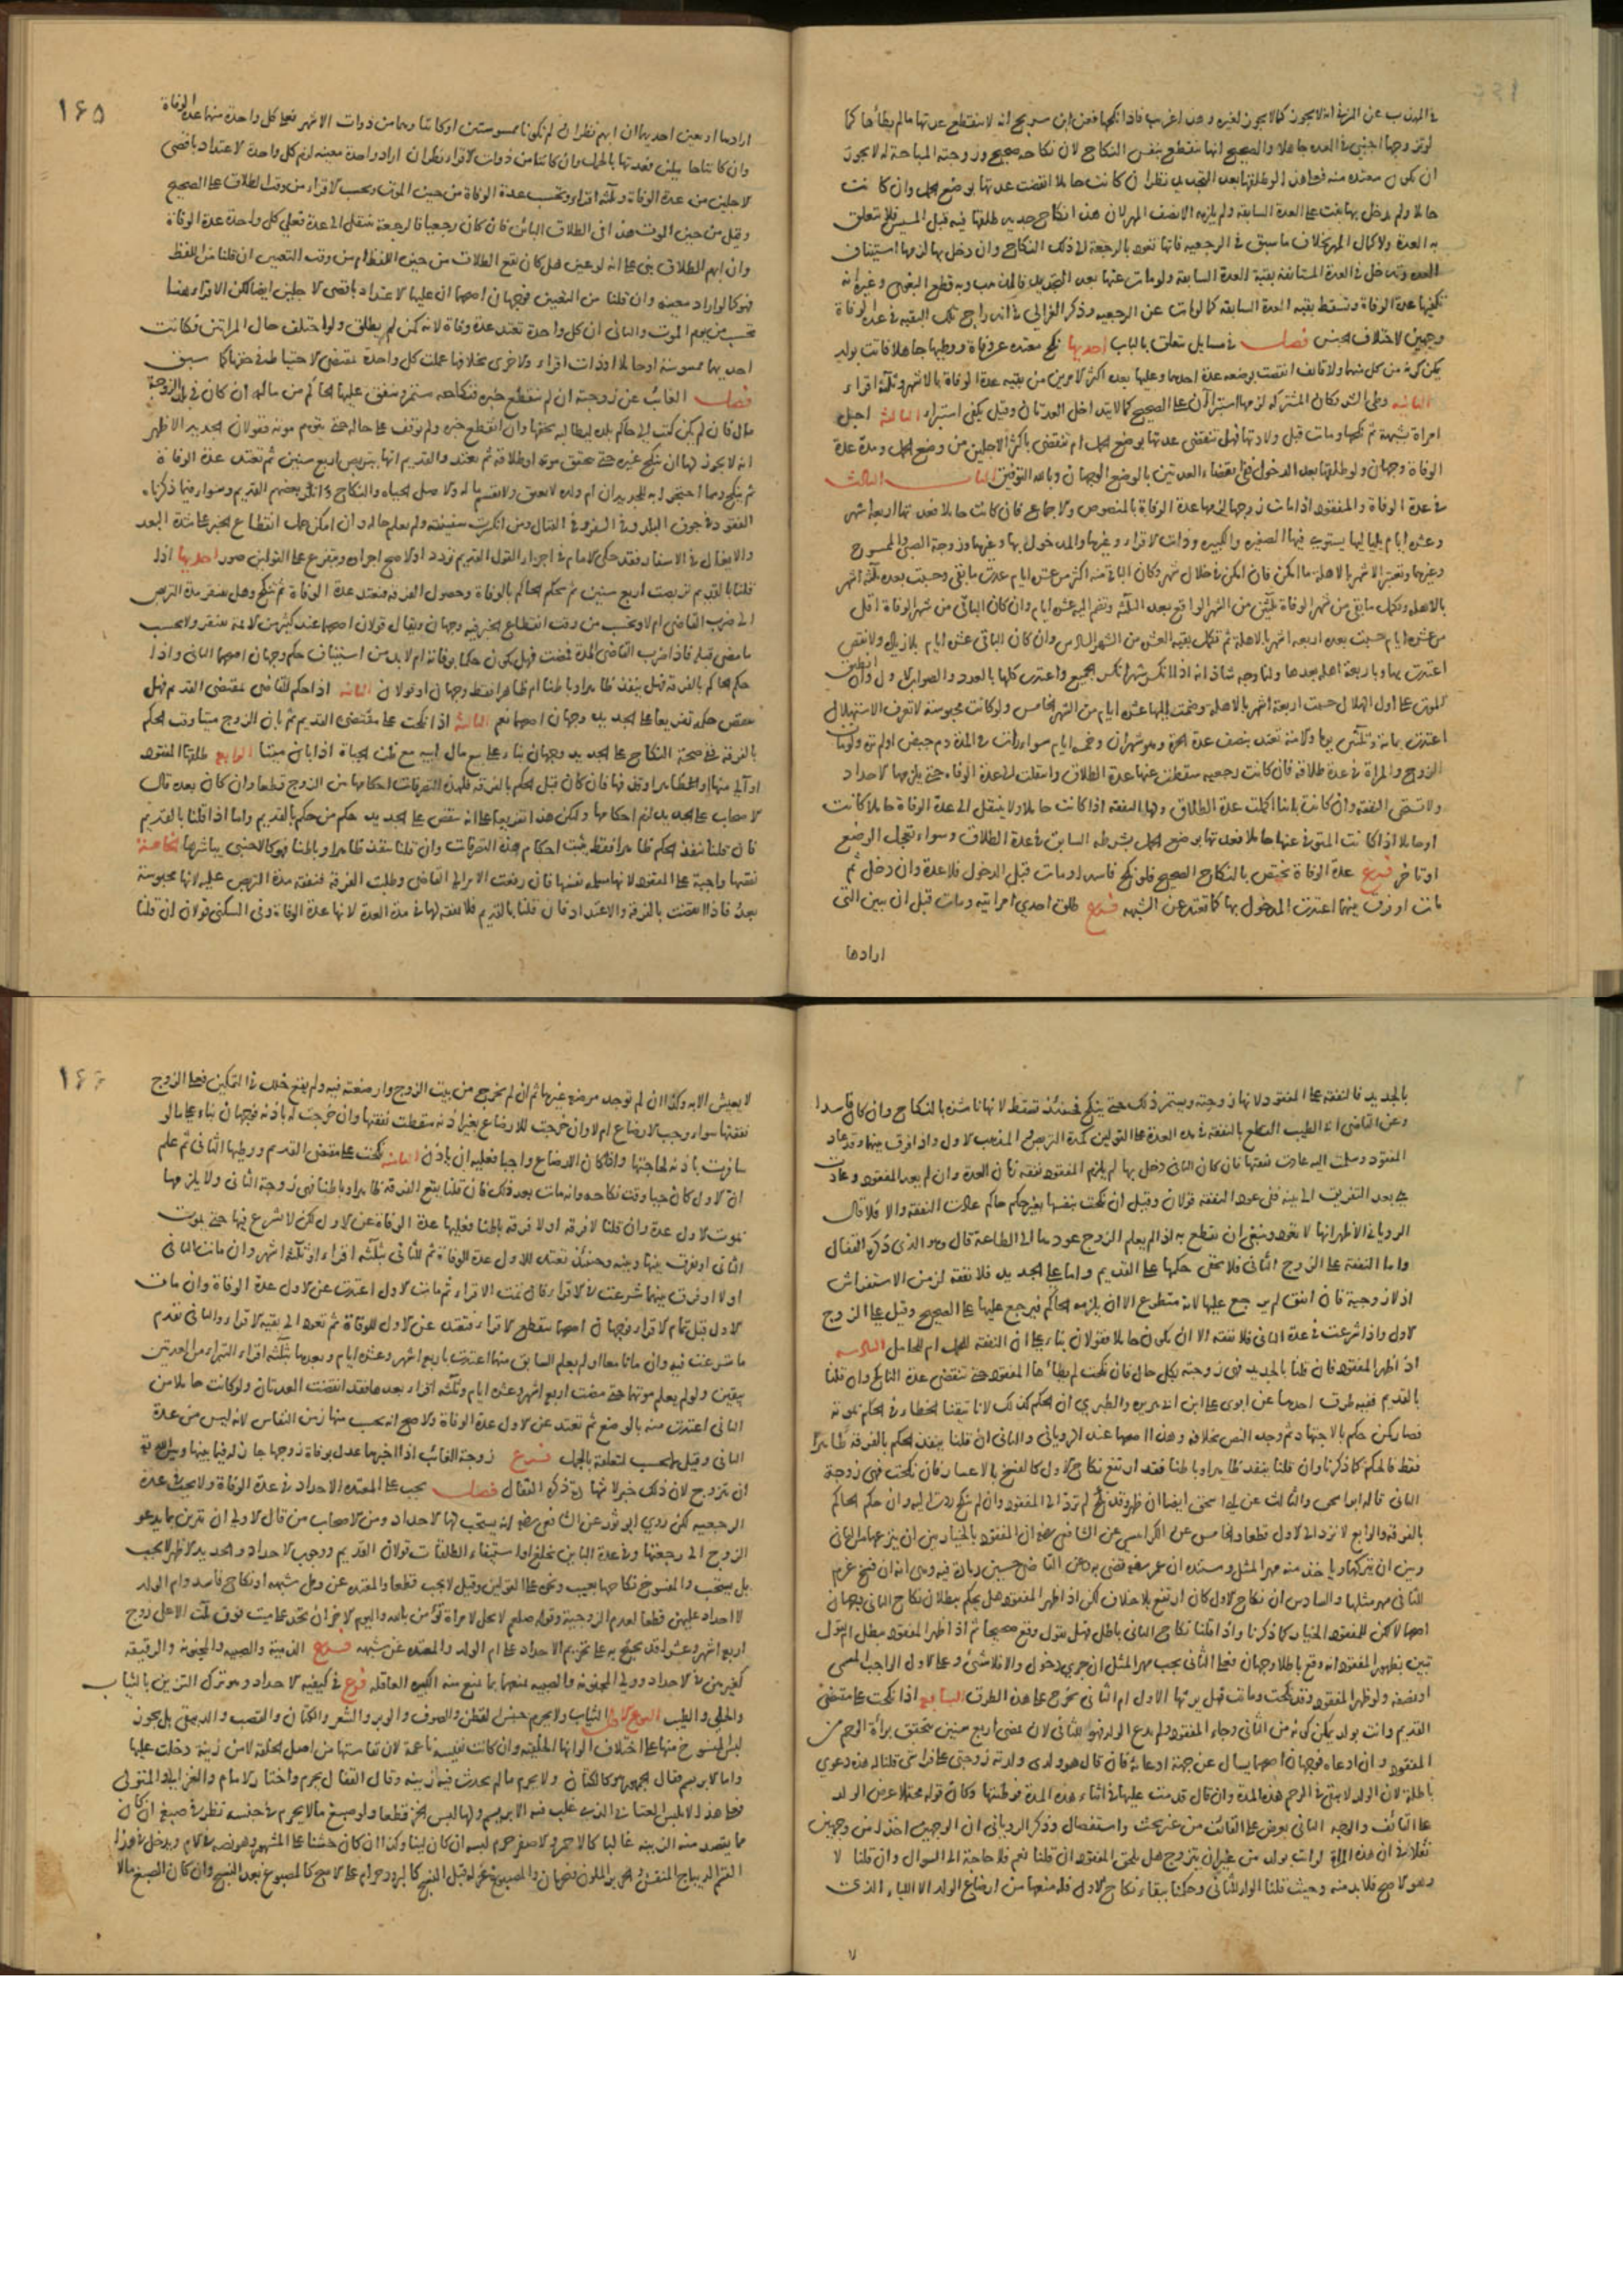 في المهذب عن المزني انه لا يجوز كما لا يجوز لغيره وهذا غريب فاذا نكحها فعن ابن سريج انه لا تنقطع عدتها ما لم يطأها كما
لو تزوجها اجنبي في العدة جاهلا والصحيح انها تنقطع بنفس النكاح لان نكاحه صحيح وزوجته المباحة له لا يجوز
ان تكون معتدة منه فعلى هذا لو طلقها بعد التجديد نظر ان كانت حاملا انقضت عدتها بوضع الحمل وان كانت
حائلا ولم يدخل بها بنت على العدة السابقة ولم يلزمه الا نصف المهر لان هذا نكاح جديد طلقها فيه قبل المسيس فلا يتعلق
به العدة ولا كمال المهر بخلاف ما سبق في الرجعية فانها تعود بالرجعة الى ذلك النكاح وان دخل بها لزمها استيناف
العدة وتدخل في العدة المستانفة بقية العدة السابقة ولو مات عنها بعد التجديد فالمذهب وبه قطع البغوي وغيره انه
تكفيها عدة الوفاة وتسقط بقية العدة السابقة كما لو مات عن الرجعية وذكر الغزالي في اندراج تلك البقية في عدة الوفاة
وجهين لاختلاف الجنس فصل في مسايل تتعلق بالباب احديها نكح معتدة عن وفاة ووطيها جاهلا فاتت بولد
يمكن كونه من كل منهما ولا قائف انقضت بوضعه عدة احدهما وعليها بعده اكثر الامرين من بقية عدة الوفاة بالاشهر وثلثة اقراء
الثانية وطئ الشريكان المشتركة لزمها استبرآن على الصحيح كما لا يتداخل العدتان وقيل يكفي استبراء الثالثة احبل
امراة بشبهة ثم نكحها ومات قبل ولادتها فهل تنقضي عدتها بوضع الحمل ام تنقضي باكثر الاجلين من وضع الحمل ومدة عدة
الوفاة وجهان ولو طلقها بعد الدخول ففي انقضاء العدتين بالوضع الوجهان وبالله التوفيق الباب الثالث
في عدة الوفاة والمفقود اذا مات زوجها لزمها عدة الوفاة بالنصوص والاجماع فان كانت حائلا فعدتها اربعة اشهر
وعشرة ايام بلياليها يستوي فيها الصغيرة والكبيرة وذات الاقراء وغيرها والمدخول بها وغيرها وزوجة الصبي والممسوح
وغيرهما وتعتبر الاشهر بالاهلة ما امكن فان امكن في خلال شهر وكان الباقي منه اكثر من عشرة ايام عدت ما بقي وحسبت بعده ثلثة اشهر
بالاهلة وتكمل ما بقي من شهر الوفاة ثلثين من الشهر الواقع بعد الثلثة وتضم اليه عشرة ايام وان كان الباقي من شهر الوفاة اقل
من عشرة ايام حسبت بعده اربعة اشهر بالاهلة ثم تكمل بقية العشر من الشهر السادس وان كان الباقي عشرة ايام بلا زيادة ولا نقص
اعتدت بها وباربعة اهلة بعدها ولنا وجه شاذ انه اذا انكسر شهر انكسر الجميع واعتدت كلها بالعدد والصواب الاول وان انطبق
الموت على اول الهلال حسبت اربعة اشهر بالاهلة وضمت اليها عشرة ايام من الشهر الخامس ولو كانت محبوسة لا تعرف الاستهلال
اعتدت بمائة وثلثين يوما والامة تعتد بنصف عدة الحرة وهو شهران وخمسة ايام سواء رات في المدة دم حيض او لم تره ولو مات
الزوج والمراة في عدة طلاقه فان كانت رجعية سقطت عنها عدة الطلاق وانتقلت الى عدة الوفاة حتى يلزمها الاحداد
ولا تستحق النفقة وان كانت باينا اكملت عدة الطلاق ولها النفقة اذا كانت حاملا ولا ينتقل الى عدة الوفاة حاملا كانت
او حائلا اذا كانت المتوفى عنها حاملا فعدتها بوضع الحمل بشرطه السابق في عدة الطلاق وسواء تعجل الوضع
او تاخر فرع عدة الوفاة تختص بالنكاح الصحيح فلو نكح فاسدا ومات قبل الدخول فلا عدة وان دخل ثم
مات او فرق بينهما اعتدت المدخول بها كما تعتد عن الشبهة فرع طلق احدى امراتيه ومات قبل ان يبين التي
ارادها
١٦٥
ارادها او يعين احديهما ان ابهم نظر ان لم تكونا ممسوستين او كانتا وهما من ذوات الاشهر فعلى كل واحدة منهما عدة الوفاة
وان كانتا حاملين فعدتهما بالحمل وان كانتا من ذوات الاقراء نظر ان اراد واحدة معينة لزم كل واحدة الاعتداد باقصى
الاجلين من عدة الوفاة وثلثة اقراء وتحسب عدة الوفاة من حين الموت وتحسب الاقراء من وقت الطلاق على الصحيح
وقيل من حين الموت هذا في الطلاق البائن فان كان رجعيا فالرجعية تنتقل الى عدة فعلى كل واحدة عدة الوفاة
وان ابهم الطلاق بني على انه لو عين هل كان يقع الطلاق من حين اللفظ ام من وقت التعيين ان قلنا من اللفظ
فهو كما لو اراد معينة وان قلنا من التعيين فوجهان اصحهما ان عليها الاعتداد باقصى الاجلين ايضا لكن الاقراء هنا
تحسب من يوم الموت والثاني ان كل واحدة تعتد عدة وفاة لانه كمن لم يطلق ولو اختلف حال المراتين فكانت
احديهما ممسوسة او حاملا او ذات اقراء والاخرى بخلافها عملت كل واحدة بمقتضى الاحتياط في حقها كما سبق
فصل الغائب عن زوجته ان لم ينقطع خبره فنكاحه مستمر وينفق عليها الحاكم من ماله ان كان في بلد الزوجة
مال فان لم يكن كتب الى حاكم بلده ليطالبه بحقها وان انقطع خبره ولم يوقف على حاله حتى يتوهم موته فقولان الجديد الاظهر
انه لا يجوز لها ان تنكح غيره حتى يتحقق موته او طلاقه ثم تعتد والقديم انها تتربص اربع سنين ثم تعتد عدة الوفاة
ثم تنكح ومما احتجوا به للجديد ان ام ولده لا تعتق ولا تقسم ماله والاصل الحياة والنكاح وانكر بعضهم القديم وسواء فيما ذكرناه
المفقود في جوف البلد وفي السفر وفي القتال ومن انكسرت سفينته ولم يعلم حاله وان امكن حمل انقطاع الخبر على شدة البعد
والايغال في الاسفار فقد حكى الامام في اجراء القول القديم تردد والاصح اجراؤه ويتفرع على القولين صور احديها اذا
قلنا بالقديم تربصت اربع سنين ثم يحكم الحاكم بالوفاة وحصول الفرقة فتعتد عدة الوفاة ثم تنكح وهل يفتقر مدة التربص
الى ضرب القاضي ام لا وتحسب من وقت انقطاع الخبر فيه وجهان ويقال قولان اصحهما عند كثير من الائمة يفتقر ولا يحسب
ما مضى قبله فاذا ضرب القاضي المدة فمضت فهل يكون حكما بوفاته ام لا بد من استيناف حكم وجهان اصحهما الثاني واذا
حكم الحاكم بالفرقة فهل ينفذ ظاهرا وباطنا ام ظاهرا فقط وجهان او قولان الثانية اذا حكم القاضي بمقتضى القديم فهل
ينقض حكمه تفريعا على الجديد وجهان اصحهما نعم الثالثة اذا نكحت على مقتضى القديم ثم بان الزوج ميتا وقت الحكم
بالفرقة ففي صحة النكاح على الجديد وجهان بناء على بيع مال ابيه مع ظن الحياة اذا بان ميتا الرابع طلقها المفقود
او آلى منها او ظاهر او قذفها فان كان قبل الحكم بالفرقة فلهذه التصرفات احكامها من الزوج قطعا وان كان بعده قال
الاصحاب على الجديد لزم احكامها ولكن هذا تفريعا على انه ينقض على الجديد حكم من حكم بالقديم واما اذا قلنا بالقديم
فان قلنا ينفذ الحكم ظاهرا فقط تثبت احكام هذه التصرفات وان قلنا ينفذ ظاهرا وباطنا فهو كالاجنبي يباشرها الخامسة
نفقتها واجبة على المفقود لانها مسلمة نفسها فان رفعت الامر الى القاضي وطلبت الفرقة فنفقة مدة التربص عليه لانها محبوسة
بعد فاذا انقضت بالفرقة والاعتداد فان قلنا بالقديم فلا نفقة لها في مدة العدة لانها عدة الوفاة وفي السكنى قولان ان قلنا
بالجديد فالنفقة على المفقود لانها زوجته ويستمر ذلك حتى ينكح فحينئذ تسقط لانها ناشزة بالنكاح وان كان فاسدا
وعن القاضي ابي الطيب القطع بالنفقة في مدة العدة على القولين كمدة التربص والمذهب الاول واذا فرق بينهما وقد عاد
المفقود وسلمت اليه عادت نفقتها فان كان الثاني دخل بها لم يلزم المفقود نفقة زمان العدة وان لم يعد المفقود وعادت
هي بعد التفريق الى بيته ففي عود النفقة قولان وقيل ان نكحت بنفسها بغير حكم حاكم عادت النفقة والا فلا قال
الروياني الاظهر انها لا تعود وينبغي ان يقطع به اذا لم يعلم الزوج عودها الى الطاعة قال وهو الذي ذكره القفال
واما النفقة على الزوج الثاني فلا تخفى حكمها على القديم واما على الجديد فلا نفقة لزمن الاستفراش
اذ لا زوجية فان انفق لم يرجع عليها لانه متطوع الا ان يلزمه الحاكم فيرجع عليها على الصحيح وقيل على الزوج
الاول واذا شرعت في عدة الثاني فلا نفقة الا ان تكون حاملا فقولان بناء على ان النفقة للحمل ام للحامل السادسة
اذا ظهر المفقود فان قلنا بالجديد فهي زوجته بكل حال فان نكحت لم يطأها المفقود حتى تنقضي عدة الناكح وان قلنا
بالقديم ففيه طرق احدها عن ابوي علي ابن ابي هريرة والطبري ان الحكم كذلك لانا تيقنا الخطاء في الحكم بموته
فصار كمن حكم بالاجتهاد ثم وجد النص بخلافه وهذا اصحها عند الروياني والثاني ان قلنا ينفذ الحكم بالفرقة ظاهرا
فقط فالحكم كما ذكرنا وان قلنا ينفذ ظاهرا وباطنا فقد ارتفع نكاح الاول كالفسخ بالاعسار فان نكحت فهي زوجة
الثاني قاله ابو اسحق والثالث عن ابي اسحق ايضا ان ظهر وقد نكحت لم ترد الى المفقود وان لم تنكح ردت اليه وان حكم الحاكم
بالفرقة والرابع لا ترد الى الاول قطعا والخامس عن الكرابيسي عن الشافعي رضه ان المفقود بالخيار بين ان ينزعها من الثاني
وبين ان يتركها وياخذ منه مهر المثل ومستنده ان عمر رضه قضى به وعن القاضي حسين زيادة فيه وهي انه ان فسخ غرم
للثاني مهر مثلها والسادس ان نكاح الاول كان ارتفع بلا خلاف لكن اذا ظهر المفقود هل يحكم ببطلان نكاح الثاني وجهان
اصحهما لا لكن للمفقود الخيار كما ذكرنا واذا قلنا نكاح الثاني باطل فهل نقول وقع صحيحا ثم اذا ظهر المفقود بطل ام نقول
تبين بظهور المفقود انه وقع باطلا وجهان فعلى الثاني يجب مهر المثل ان جرى دخول والا فلا شئ وعلى الاول الواجب المسمى
او نصفه ولو ظهر المفقود وقد نكحت وماتت فهل يرثها الاول ام الثاني تخرج على هذه الطرق السابع اذا نكحت على مقتضى
القديم واتت بولد يمكن كونه من الثاني وجاء المفقود ولم يدع الولد فهو للثاني لان بمضي اربع سنين يتحقق براءة الرحم من
المفقود وان ادعاه فوجهان اصحهما يسال عن جهة ادعائه فان قال هو ولدي ولدته زوجتي على فراشي قلنا له هذه دعوى
باطلة لان الولد لا يبقى في الرحم هذه المدة وان قال قدمت عليها في اثناء هذه المدة فوطئتها وكان قوله محتملا عرض الولد
على القائف والوجه الثاني يعرض على القائف من غير بحث واستفصال وذكر الروياني ان الوجهين اخذا من وجهين
نقلا في ان هذه المراة لو اتت بولد من غير ان يتزوج هل يلحق المفقود ان قلنا نعم فلا حاجة الى السؤال وان قلنا لا
وهو الاصح فلا بد منه وحيث قلنا الولد للثاني وحكمنا ببقاء نكاح الاول فله منعها من ارضاع الولد الا اللباء الذي
لا
١٦٦
لا يعيش الا به وكذا ان لم توجد مرضعة غيرها ثم ان لم تخرج من بيت الزوج وارضعته فيه ولم يقع خلل في التمكين فعلى الزوج
نفقتها سواء وجب الارضاع ام لا وان خرجت للارضاع بغير اذنه سقطت نفقتها وان خرجت له باذنه فوجهان بناء على ما لو
سافرت باذنه لحاجتها واذا كان الارضاع واجبا فعليه ان ياذن الثامنة نكحت على مقتضى القديم ووطيها الثاني ثم علم
ان الاول كان حيا وقت نكاحه وانه مات بعد ذلك فان قلنا يقع الفرقة ظاهرا وباطنا فهي زوجة الثاني ولا يلزمها
بموت الاول عدة وان قلنا لا فرقة او لا فرقة باطنا فعليها عدة الوفاة عن الاول لكن لا تشرع فيها حتى يموت
الثاني او يفرق بينها وبينه وحينئذ تعتد للاول عدة الوفاة ثم للثاني بثلثة اقراء او ثلثة اشهر وان مات الثاني
اولا او فرق بينهما شرعت في الاقراء فان تمت الاقراء ثم مات الاول اعتدت عن الاول عدة الوفاة وان مات
الاول قبل تمام الاقراء فوجهان اصحهما ينقطع الاقراء فتعتد عن الاول للوفاة ثم تعود الى بقية الاقراء والثاني تقدم
ما شرعت فيه وان ماتا معا او لم يعلم السابق منهما اعتدت باربعة اشهر وعشرة ايام وبعدها بثلثة اقراء لتبرا من العدتين
بيقين ولو لم يعلم موتهما حتى مضت اربعة اشهر وعشرة ايام وثلثة اقراء بعدها فقد انقضت العدتان ولو كانت حاملا من
الثاني اعتدت منه بالوضع ثم تعتد عن الاول عدة الوفاة والاصح انه يحسب منها زمن النفاس لانه ليس من عدة
الثاني وقيل لا يحسب لتعلقه بالحمل فرع زوجة الغائب اذا اخبرها عدل بوفاة زوجها جاز لها فيما بينها وبين الله تع
ان تتزوج لان ذلك خبر لا شهادة ذكره القفال فصل يجب على المعتدة الاحداد في عدة الوفاة ولا يجب في عدة
الرجعية لكن روى ابو ثور عن الشافعي رضه انه يستحب لها الاحداد ومن الاصحاب من قال الاولى ان تتزين بما يدعو
الزوج الى رجعتها وفي عدة الباين بخلع او استيفاء الطلقات قولان القديم ووجوب الاحداد والجديد الاظهر لا يجب
بل يستحب والمفسوخ نكاحها بعيب ونحوه على القولين وقيل لا يجب قطعا والمعتدة عن وطئ شبهة او نكاح فاسد وام الولد
لا احداد عليهن قطعا لعدم الزوجية وقوله صلعم لا يحل لامراة تؤمن بالله واليوم الاخر ان تحد على ميت فوق ثلث الا على زوج
اربعة اشهر وعشرا قد يحتج به على تحريم الاحداد على ام الولد والمعتدة عن شبهة فرع الذمية والصبية والمجنونة والرقيقة
كغيرهن في الاحداد وولي المجنونة والصبية يمنعهما مما يمنع منه الكبيرة العاقلة فرع في كيفية الاحداد وهو ترك التزين بالثياب
والحلي والطيب النوع الاول الثياب ولا يحرم جنس القطن والصوف والوبر والشعر والكتان والقصب والدبيقي بل يجوز
لبس المنسوج منها على اختلاف الوانها الخلقية وان كانت نفيسة ناعمة لان نفاستها من اصل الخلقة لا من زينة دخلت عليها
واما الابريسم فقال الجمهور هو كالكتان ولا يحرم ما لم يحدث فيه زينة وقال القفال يحرم واختاره الامام والغزالي والمتولي
فعلى هذا لا تلبس العتابي الذي غلب فيه الابريسم ولها لبس الخز قطعا ولو صبغ ما لا يحرم في جنسه نظر في صبغه ان كان
مما يقصد منه الزينة غالبا كالاحمر والاصفر حرم لبسه ان كان لينا وكذا ان كان خشنا على المشهور وهو نصه في الام ويدخل في هذا
القسم الديباج المنقش والحرير الملون فيحرمان والمصبوغ غزله قبل النسج كالبرود حرام على الاصح كالمصبوغ بعد النسج وان كان الصبغ مما لا